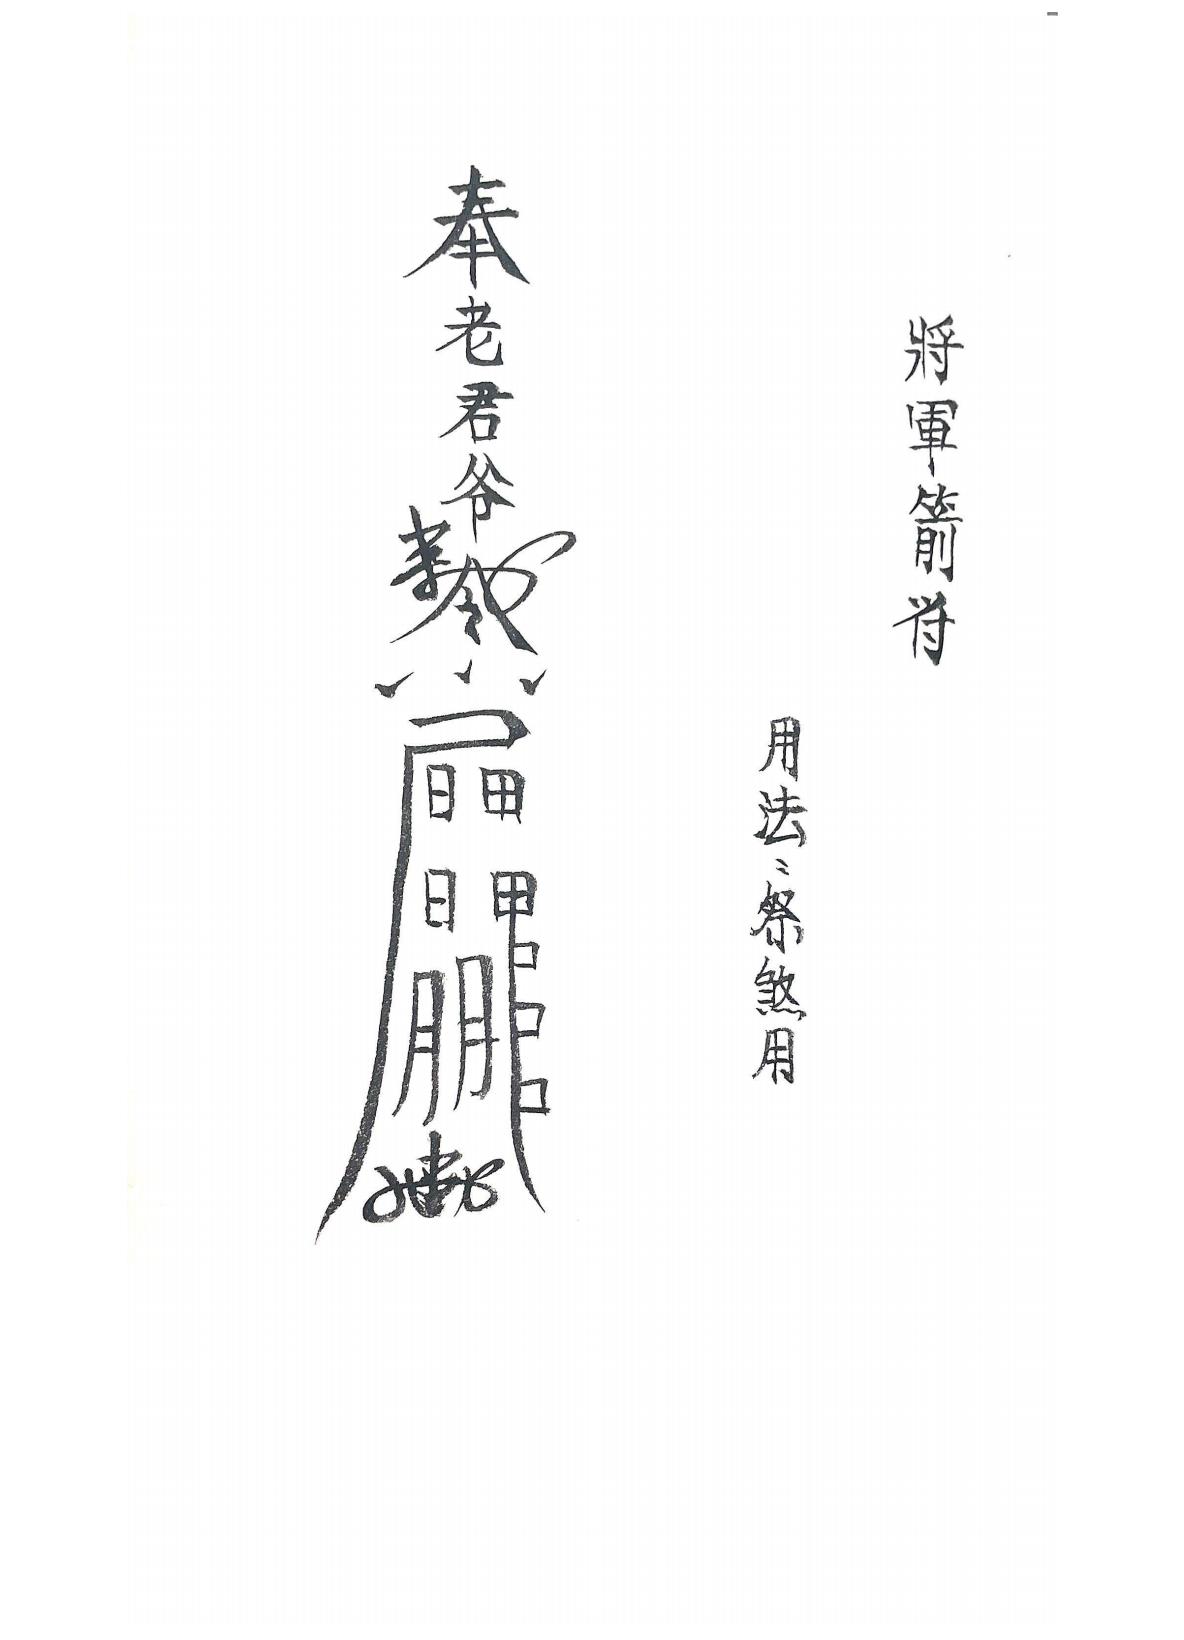 將軍箭符
用法:祭煞用
奉老君爷
令
日田
日甲
月月